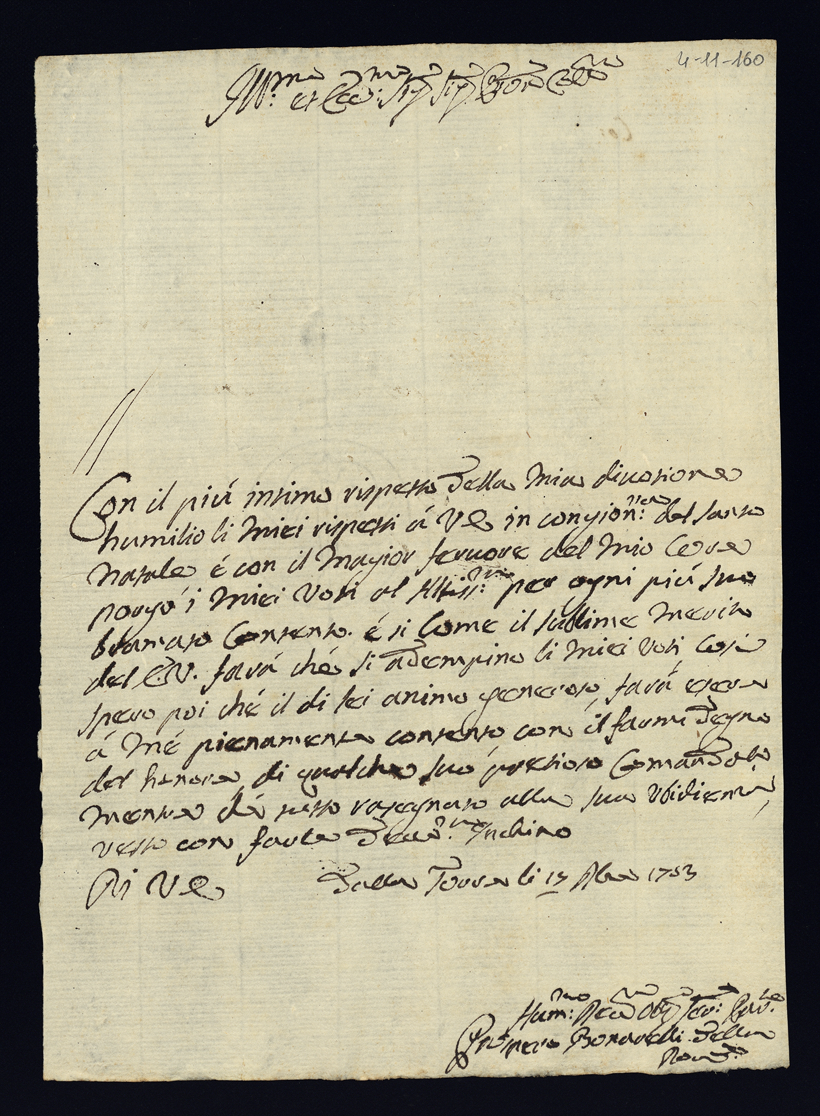 4-11-160
Ill.mo et Ecc.mo Sig.r Sig.r P.ron Coll.mo
Con il più intimo rispetto della mia divotione
humilio li miei rispetti á VE in congion.ra del santo
Natale é con il magior fervore del mio Core
porgo i miei Voti al Altiss.mo per ogni più suo
bramato Contento. é si Come il sublime merito
del EV. fará ché si adempino li miei Voti Cosi
spero poi ché il di lei animo generoso, fará esere
á mé pienamente contento con il farmi degno
del honore di qualche suo pretioso Comando
mentre da tutto rasegnato alla sua Ubidienza
resto con farle Inchino
Di VE Dalla Torre li 17 Xbre 1753
Hum.mo Dev.mo Obg.mo Ser.
Prospero Bonarelli Della